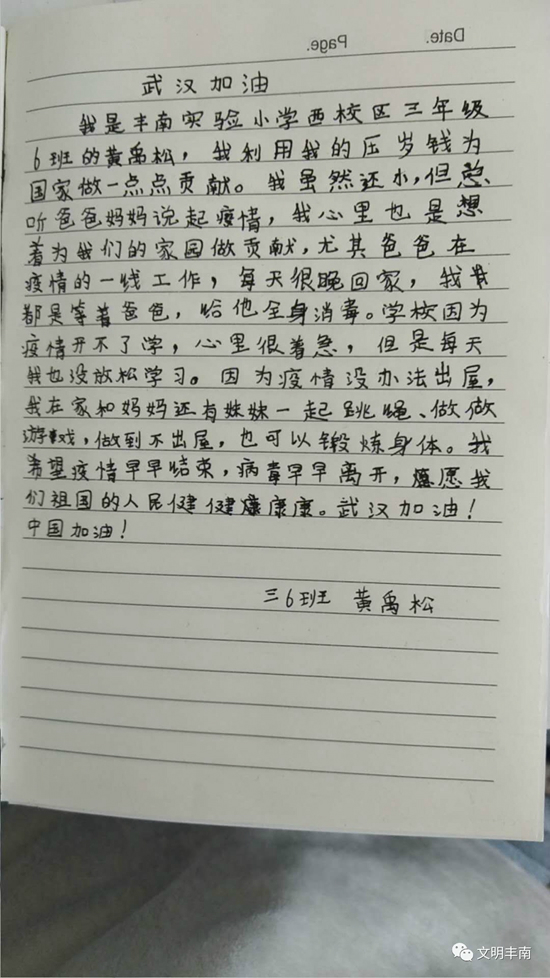 Date.
Page.
武汉加油
我是丰南实验小学西校区三年级
6班的黄禹松，我利用我的压岁钱为
国家做一点点贡献。我虽然还小，但总
听爸爸妈妈说起疫情，我心里也是想
着为我们的家园做贡献，尤其爸爸在
疫情的一线工作，每天很晚回家，我
都是等着爸爸，给他全身消毒。学校因为
疫情开不了学，心里很着急，但是每天
我也没放松学习。因为疫情没办法出屋，
我在家和妈妈还有妹妹一起跳绳、做做
游戏，做到不出屋，也可以锻炼身体。我
希望疫情早早结束，病毒早早离开，愿我
们祖国的人民健健康康。武汉加油！
中国加油！
三6班 黄禹松
文明丰南